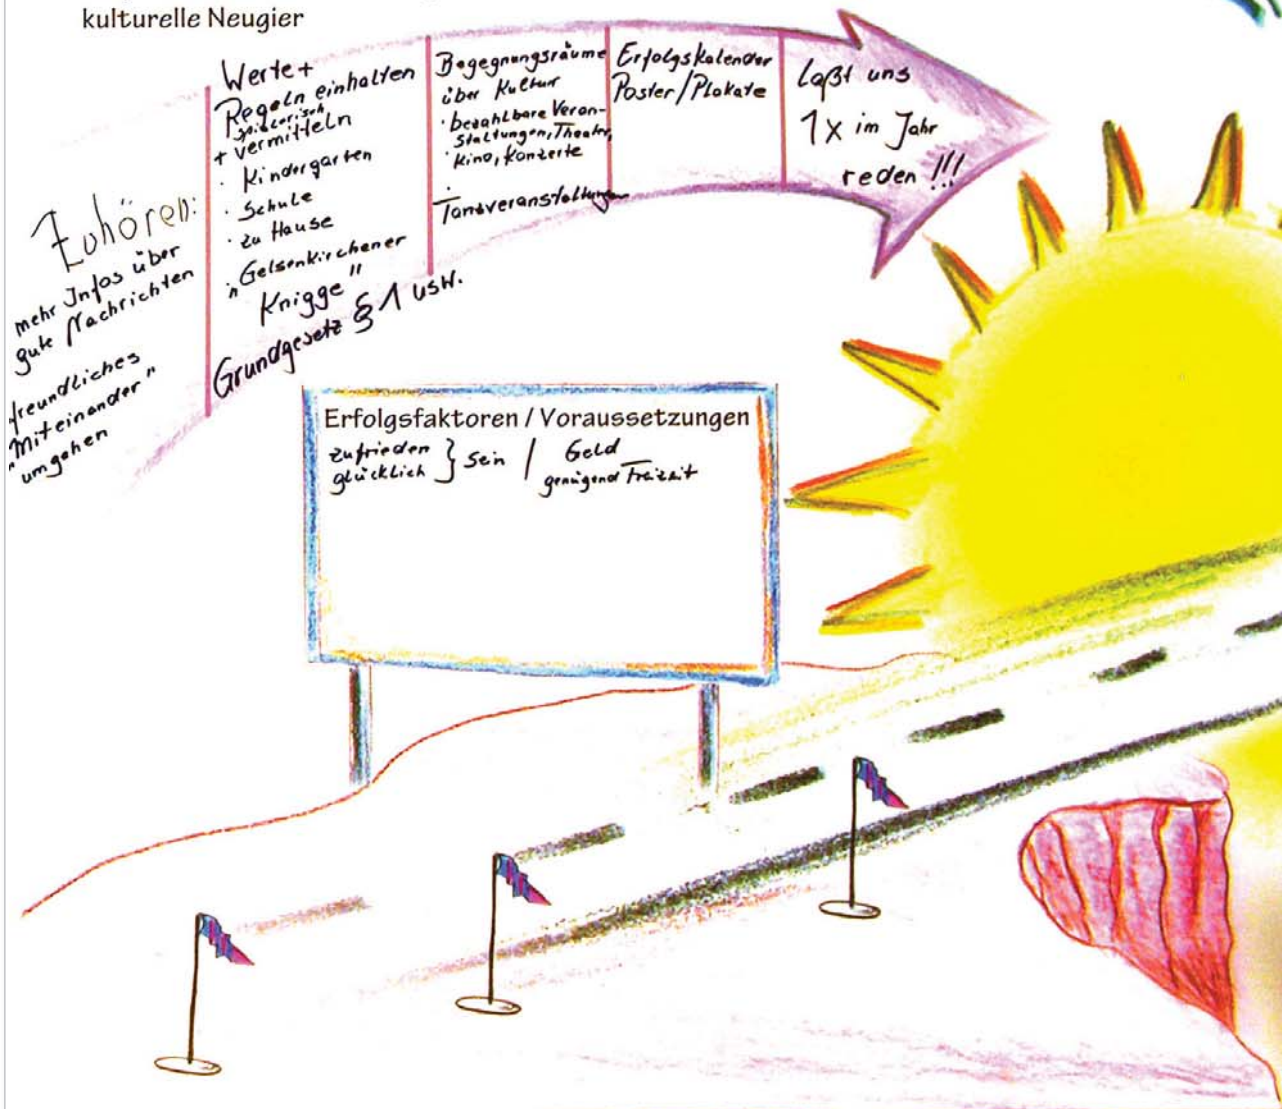 kulturelle Neugier
Zuhören:
mehr Infos über
gute Nachrichten
freundliches
"Miteinander"
umgehen
Werte +
Regeln einhalten
spielerisch
+ vermitteln
· Kindergarten
· Schule
· zu Hause
· "Gelsenkirchener
Knigge"
Grundgesetz § 1 usw.
Begegnungsräume
über Kultur
· bezahlbare Veran-
staltungen, Theater,
· Kino, Konzerte
·
Tanzveranstaltungen
Erfolgskalender
Poster/Plakate
Laßt uns
1x im Jahr
reden !!!
Erfolgsfaktoren / Voraussetzungen
zufrieden
glücklich } sein / Geld
genügend Freizeit